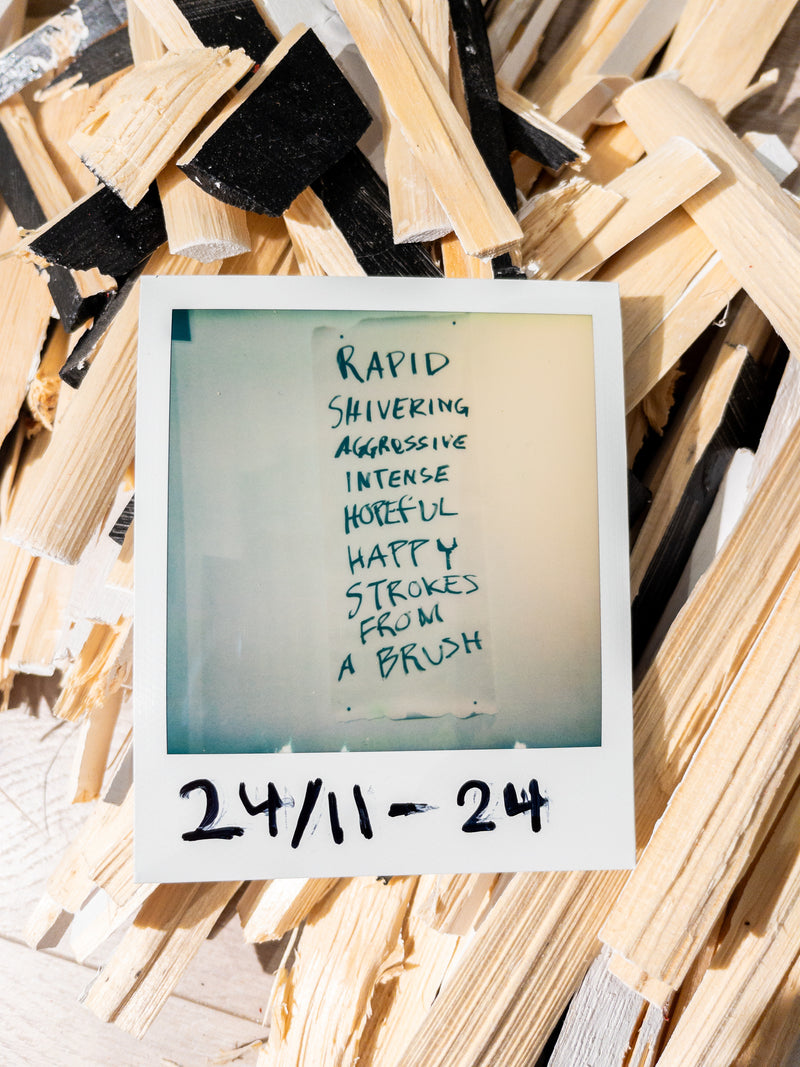 RAPID
SHIVERING
AGGRESSIVE
INTENSE
HOPEFUL
HAPPY
STROKES
FROM
A BRUSH
24/11-24